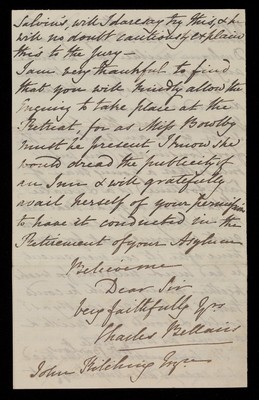 Salvin's, will I dare say try this, & he
will no doubt cautiously explain
this to the Jury —
I am very thankful to find
that you will kindly allow the
Enquiry to take place at the
Retreat, for as Miss Bowlby
must be present, I know she
would dread the publicity of
an Inn & will gratefully
avail herself of your permission
to have it conducted in the
Retirement of your Asylum
Believe me
Dear Sir
Very faithfully Yrs
Charles Bellairs
John Kitching Esqre